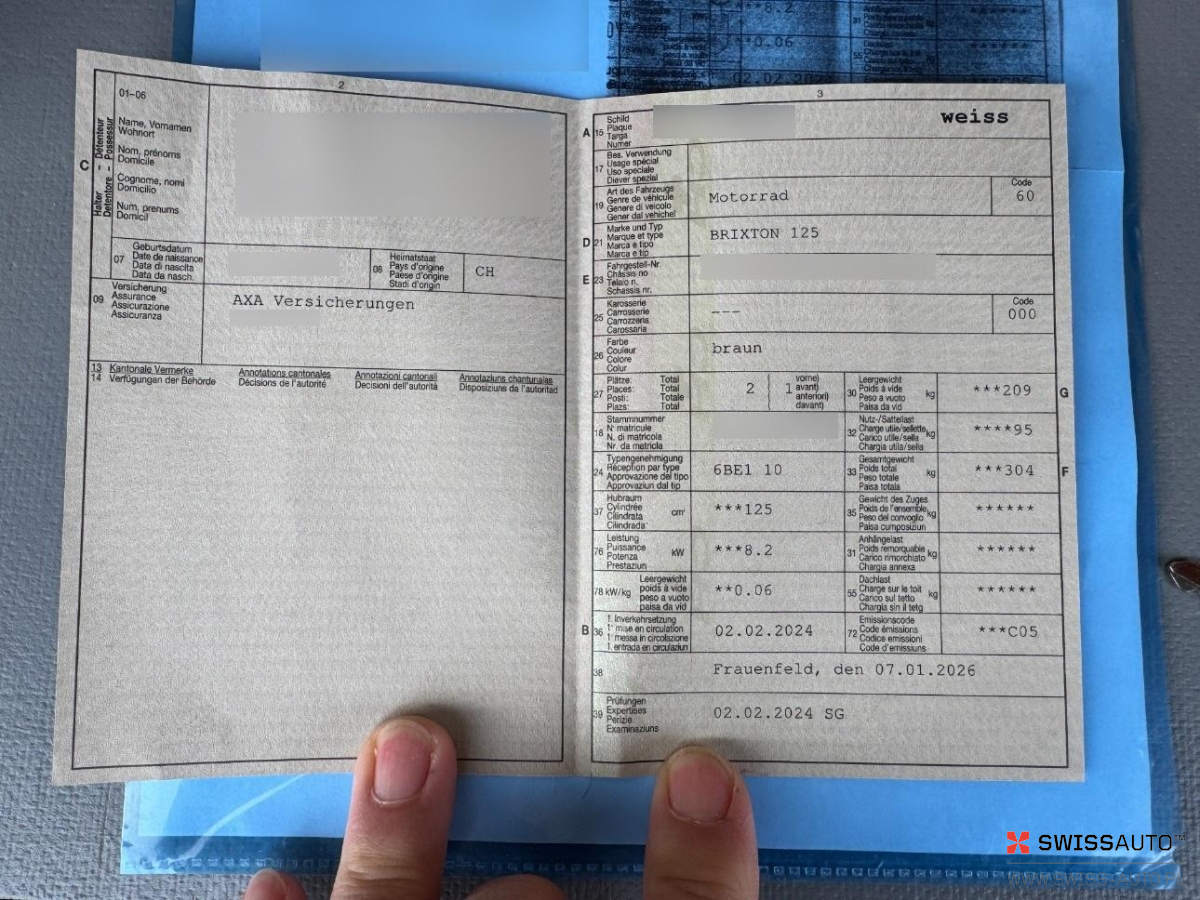 ***8.2
**0.06
02.02.202
2
01–06
C
Halter – Détenteur
Detentore – Possessur
Name, Vornamen
Wohnort
Nom, prénoms
Domicile
Cognome, nomi
Domicilio
Num, prenums
Domicil
07
Geburtsdatum
Date de naissance
Data di nascita
Data da nasch.
08
Heimatstaat
Pays d'origine
Paese d'origine
Stadi d'origin
CH
09
Versicherung
Assurance
Assicurazione
Assicuranza
AXA Versicherungen
13 Kantonale Vermerke
14 Verfügungen der Behörde
Annotations cantonales
Décisions de l'autorité
Annotazioni cantonali
Decisioni dell'autorità
Annotaziuns chantunalas
Disposiziuns da l'autoritad
3
A 15
Schild
Plaque
Targa
Numer
weiss
17
Bes. Verwendung
Usage spécial
Uso speciale
Diever spezial
19
Art des Fahrzeugs
Genre de véhicule
Genere di veicolo
Gener dal vehichel
Motorrad
Code
60
D 21
Marke und Typ
Marque et type
Marca e tipo
Marca e tip
BRIXTON 125
E 23
Fahrgestell-Nr.
Châssis no
Telaio n.
Schassis nr.
25
Karosserie
Carrosserie
Carrozzeria
Carossaria
---
Code
000
26
Farbe
Couleur
Colore
Colur
braun
27
Plätze: Total
Places: Total
Posti: Totale
Plazs: Total
2
1
vorne)
avant)
anteriori)
davant)
30
Leergewicht
Poids à vide
Peso a vuoto
Paisa da vid
kg
***209
G
18
Stammnummer
N° matricule
N. di matricola
Nr. da matricla
32
Nutz-/Sattellast
Charge utile/sellette
Carico utile/sella
Chargia utila/sella
kg
****95
24
Typengenehmigung
Réception par type
Approvazione del tipo
Approvaziun dal tip
6BE1 10
33
Gesamtgewicht
Poids total
Peso totale
Paisa totala
kg
***304
F
37
Hubraum
Cylindrée
Cilindrata
Cilindrada
cm³
***125
35
Gewicht des Zuges
Poids de l'ensemble
Peso del convoglio
Paisa cumposiziun
kg
******
76
Leistung
Puissance
Potenza
Prestaziun
kW
***8.2
31
Anhängelast
Poids remorquable
Carico rimorchiato
Chargia annexa
kg
******
78 kW/kg
Leergewicht
poids à vide
peso a vuoto
paisa da vid
**0.06
55
Dachlast
Charge sur le toit
Carico sul tetto
Chargia sin il tetg
kg
******
B 36
1. Inverkehrsetzung
1re mise en circulation
1a messa in circolazione
1. entrada en circulaziun
02.02.2024
72
Emissionscode
Code émissions
Codice emissioni
Code d'emissiuns
***C05
38
Frauenfeld, den 07.01.2026
39
Prüfungen
Expertises
Perizie
Examinaziuns
02.02.2024 SG
SWISSAUTO™